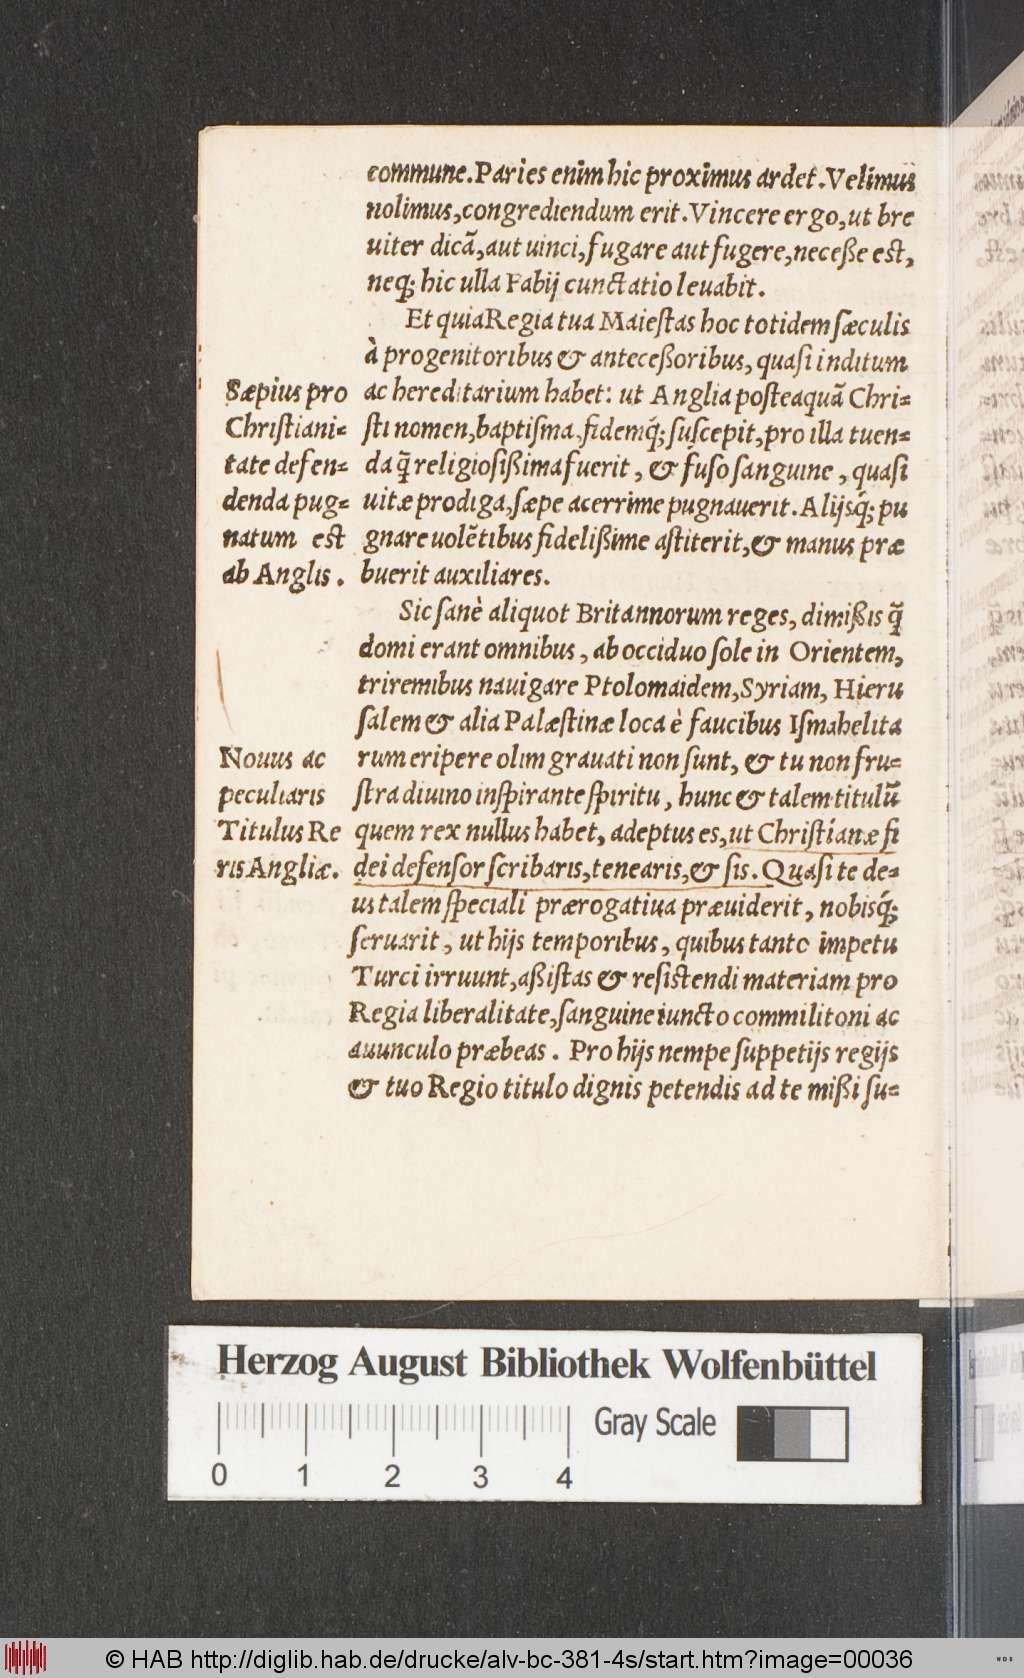 commune. Paries enim hic proximus ardet. Velimus
nolimus, congrediendum erit. Vincere ergo, ut bre
uiter dicã, aut uinci, fugare aut fugere, neceße est,
neq́; hic ulla Fabij cunctatio leuabit.
Et quia Regia tua Maiestas hoc totidem sæculis
à progenitoribus & anteceßoribus, quasi inditum
ac hereditarium habet: ut Anglia posteaquã Chri=
sti nomen, baptisma, fidemq́; suscepit, pro illa tuen=
da q̃ religiosißima fuerit, & fuso sanguine, quasi
uitæ prodiga, sæpe acerrime pugnauerit. Alijsq́; pu
gnare uolẽtibus fidelißime astiterit, & manus præ
buerit auxiliares.
Sæpius pro
Christiani=
tate defen=
denda pug=
natum est
ab Anglis.
Sic sanè aliquot Britannorum reges, dimißis q̃
domi erant omnibus, ab occiduo sole in Orientem,
triremibus nauigare Ptolomaidem, Syriam, Hieru
salem & alia Palæstinæ loca è faucibus Ismahelita
rum eripere olim grauati non sunt, & tu non fru=
stra diuino inspirante spiritu, hunc & talem titulũ
quem rex nullus habet, adeptus es, ut Christianæ fi
dei defensor scribaris, tenearis, & sis. Quasi te de=
us talem speciali prærogatiua præuiderit, nobisq́;
seruarit, ut hijs temporibus, quibus tanto impetu
Turci irruunt, aßistas & resistendi materiam pro
Regia liberalitate, sanguine iuncto commilitoni ac
auunculo præbeas. Pro hijs nempe suppetijs regijs
& tuo Regio titulo dignis petendis ad te mißi su=
Nouus ac
peculiaris
Titulus Re
ris Angliæ.
Herzog August Bibliothek Wolfenbüttel
Gray Scale
0 1 2 3 4
© HAB http://diglib.hab.de/drucke/alv-bc-381-4s/start.htm?image=00036